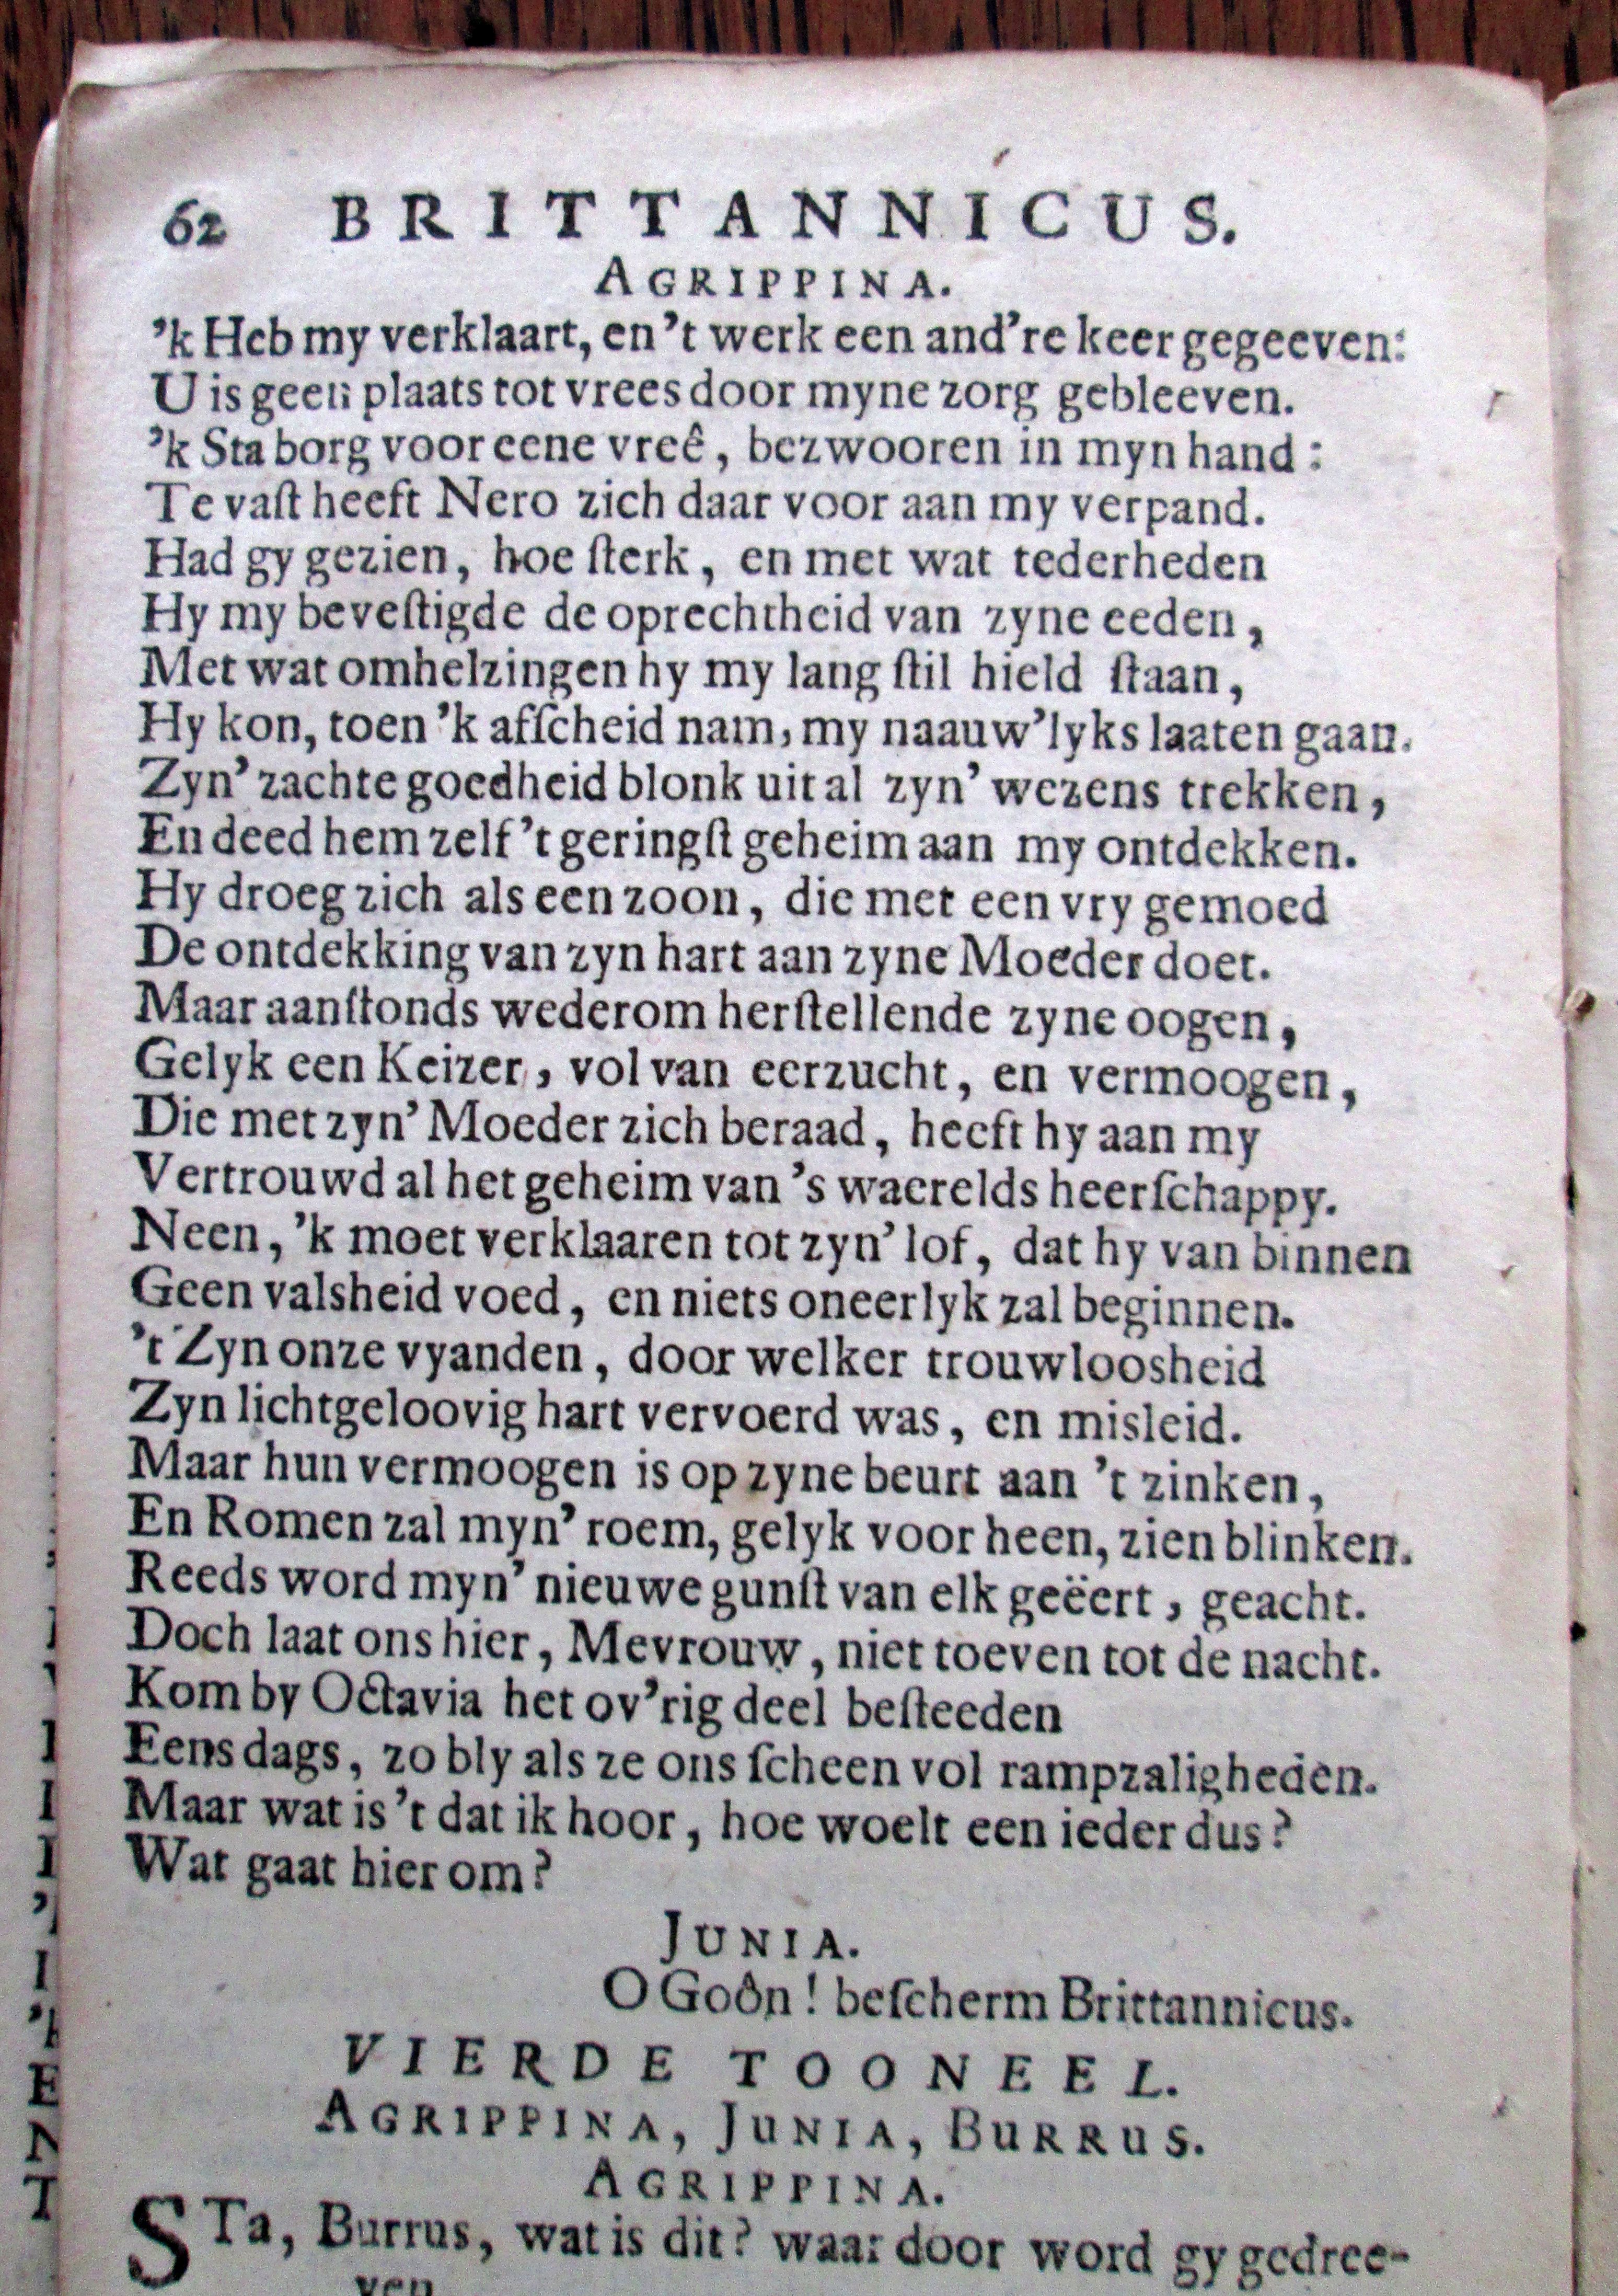 62 BRITTANNICUS.
AGRIPPINA.
'k Heb my verklaart, en 't werk een and're keer gegeeven:
U is geen plaats tot vrees door myne zorg gebleeven.
'k Sta borg voor eene vreê, bezwooren in myn hand:
Te vaſt heeft Nero zich daar voor aan my verpand.
Had gy gezien, hoe ſterk, en met wat tederheden
Hy my beveſtigde de oprechtheid van zyne eeden,
Met wat omhelzingen hy my lang ſtil hield ſtaan,
Hy kon, toen 'k afſcheid nam, my naauw'lyks laaten gaan.
Zyn' zachte goedheid blonk uit al zyn' wezens trekken,
En deed hem zelf 't geringſt geheim aan my ontdekken.
Hy droeg zich als een zoon, die met een vry gemoed
De ontdekking van zyn hart aan zyne Moeder doet.
Maar aanſtonds wederom herſtellende zyne oogen,
Gelyk een Keizer, vol van eerzucht, en vermoogen,
Die met zyn' Moeder zich beraad, heeft hy aan my
Vertrouwd al het geheim van 's waerelds heerſchappy.
Neen, 'k moet verklaaren tot zyn' lof, dat hy van binnen
Geen valsheid voed, en niets oneerlyk zal beginnen.
't Zyn onze vyanden, door welker trouwloosheid
Zyn lichtgeloovig hart vervoerd was, en misleid.
Maar hun vermoogen is op zyne beurt aan 't zinken,
En Romen zal myn' roem, gelyk voor heen, zien blinken.
Reeds word myn' nieuwe gunſt van elk geëert, geacht.
Doch laat ons hier, Mevrouw, niet toeven tot de nacht.
Kom by Octavia het ov'rig deel beſteeden
Eens dags, zo bly als ze ons ſcheen vol rampzaligheden.
Maar wat is 't dat ik hoor, hoe woelt een ieder dus?
Wat gaat hier om?
JUNIA.
O Goôn! beſcherm Brittannicus.
VIERDE TOONEEL.
AGRIPPINA, JUNIA, BURRUS.
AGRIPPINA.
STa, Burrus, wat is dit? waar door word gy gedree-
ven